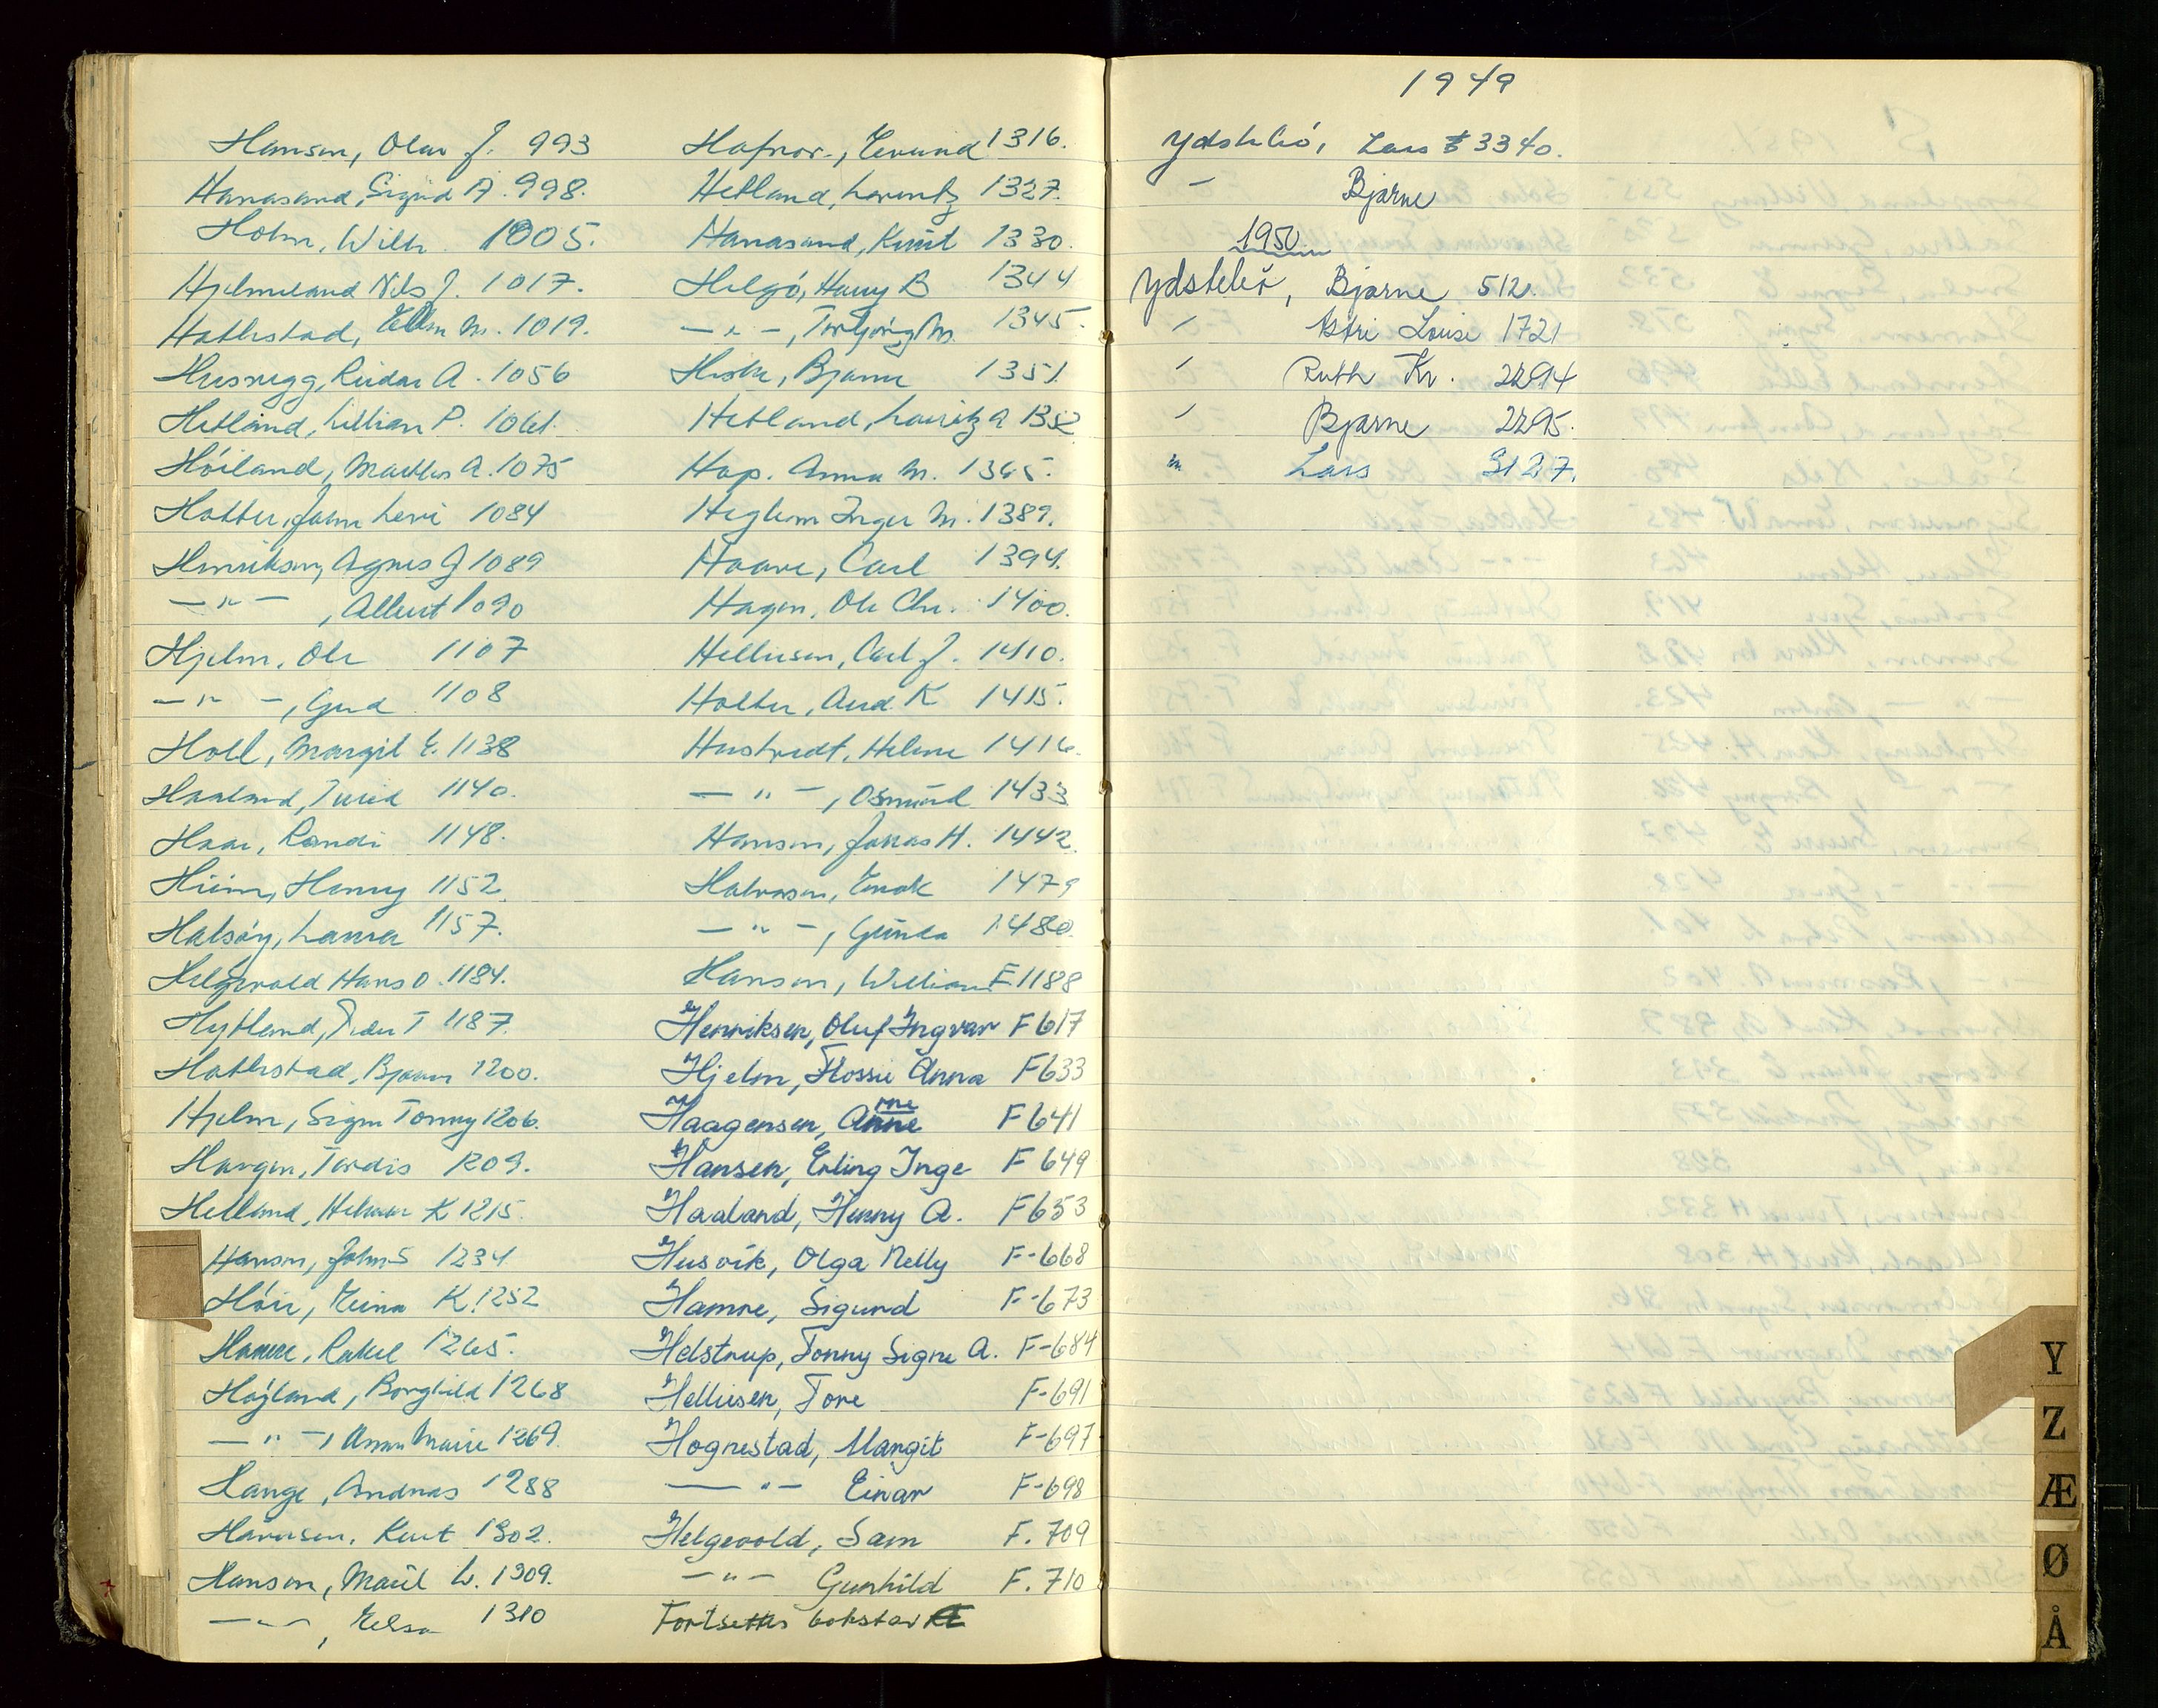 Hansen, Olav J. 993
Hanasand, Sigrid A. 998.
Holm, Wilh. 1005.
Hjelmeland Nils J. 1017.
Hatlestad, Ellen M. 1019.
Husnegg, Reidar A. 1056
Hetland, Lillian P. 1061.
Höiland, Mathis A. 1075
Holter, John Levi 1084
Henriksen, Agnes J 1089
— " — , Albert 1090
Hjelm, Ole 1107
— " —, Gud 1108
Holl, Margit E. 1138
Haaland, Turid 1140.
Haar, Randi 1148.
Hiim, Henny 1152
Halsöy, Laura 1157.
Helgevold Hans O. 1184.
Hytland, Peder T 1187.
Hatlestad, Bjarne 1200.
Hjelm, Signe Tonny 1206.
Haugen, Tordis 1209.
Helland, Helmer K 1215.
Hansen, John S 1234
Höie, Reina K. 1252
Hamre, Rakel 1265.
Höjland, Borghild 1268
— " —, Anna Marie 1269.
Hauge, Andreas 1288
Halvorsen, Knut 1302.
Hansen, Marit L. 1309.
— " — , Elsa 1310
Hafnor, Eivind 1316.
Hetland, Lorentz 1327.
Hanasand, Knut 1330.
Helgö, Harry B 1344
— " —, Torbjörg M. 1345.
Hiske, Bjarne 1351.
Hetland, Lauritz A 1352
Hop. Anna M. 1365.
Heglem Inger M. 1389.
Haave, Carl 1394.
Hagen, Ole Chr. 1400.
Helliesen, Carl J. 1410.
Holter, Aud K 1415.
Hustvedt, Helene 1416.
— " — , Osmund 1433
Hansen, Jonas H. 1442.
Halvorsen, Enok 1479
— " —, Gunda 1480.
Hansen, William E. 1188
Henriksen, Oluf Ingvar F 617
Hjelm, Flossie Anna F 633
Haagensen, Arne F 641
Hansen, Erling Inge F 649
Haaland, Henny A. F 653
Husvik, Olga Nelly F-668
Hamre, Sigurd F-673
Helstrup, Tonny Signe A. F-684
Helliesen, Tore F-691
Hognestad, Margit F-697
— " — Einar F-698
Helgevold, Sam F. 709
— " — Gunhild F. 710
Fortsettes bokstav
1949
Ydstebö, Lars 3340.
— Bjarne
1950
Ydstebö, Bjarne 512.
" Astri Louise 1721
" Ruth Kr. 2294
" Bjarne 2295.
" Lars 3127.
Y
Z
Æ
Ø
Å